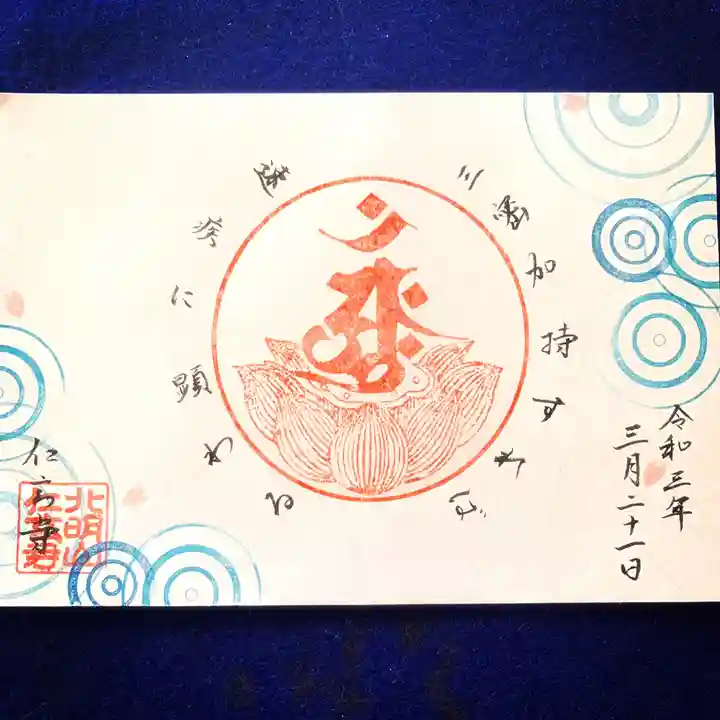 三密加持すれば
速疾に顕る
令和三年
三月二十一日
仁寺
北明山